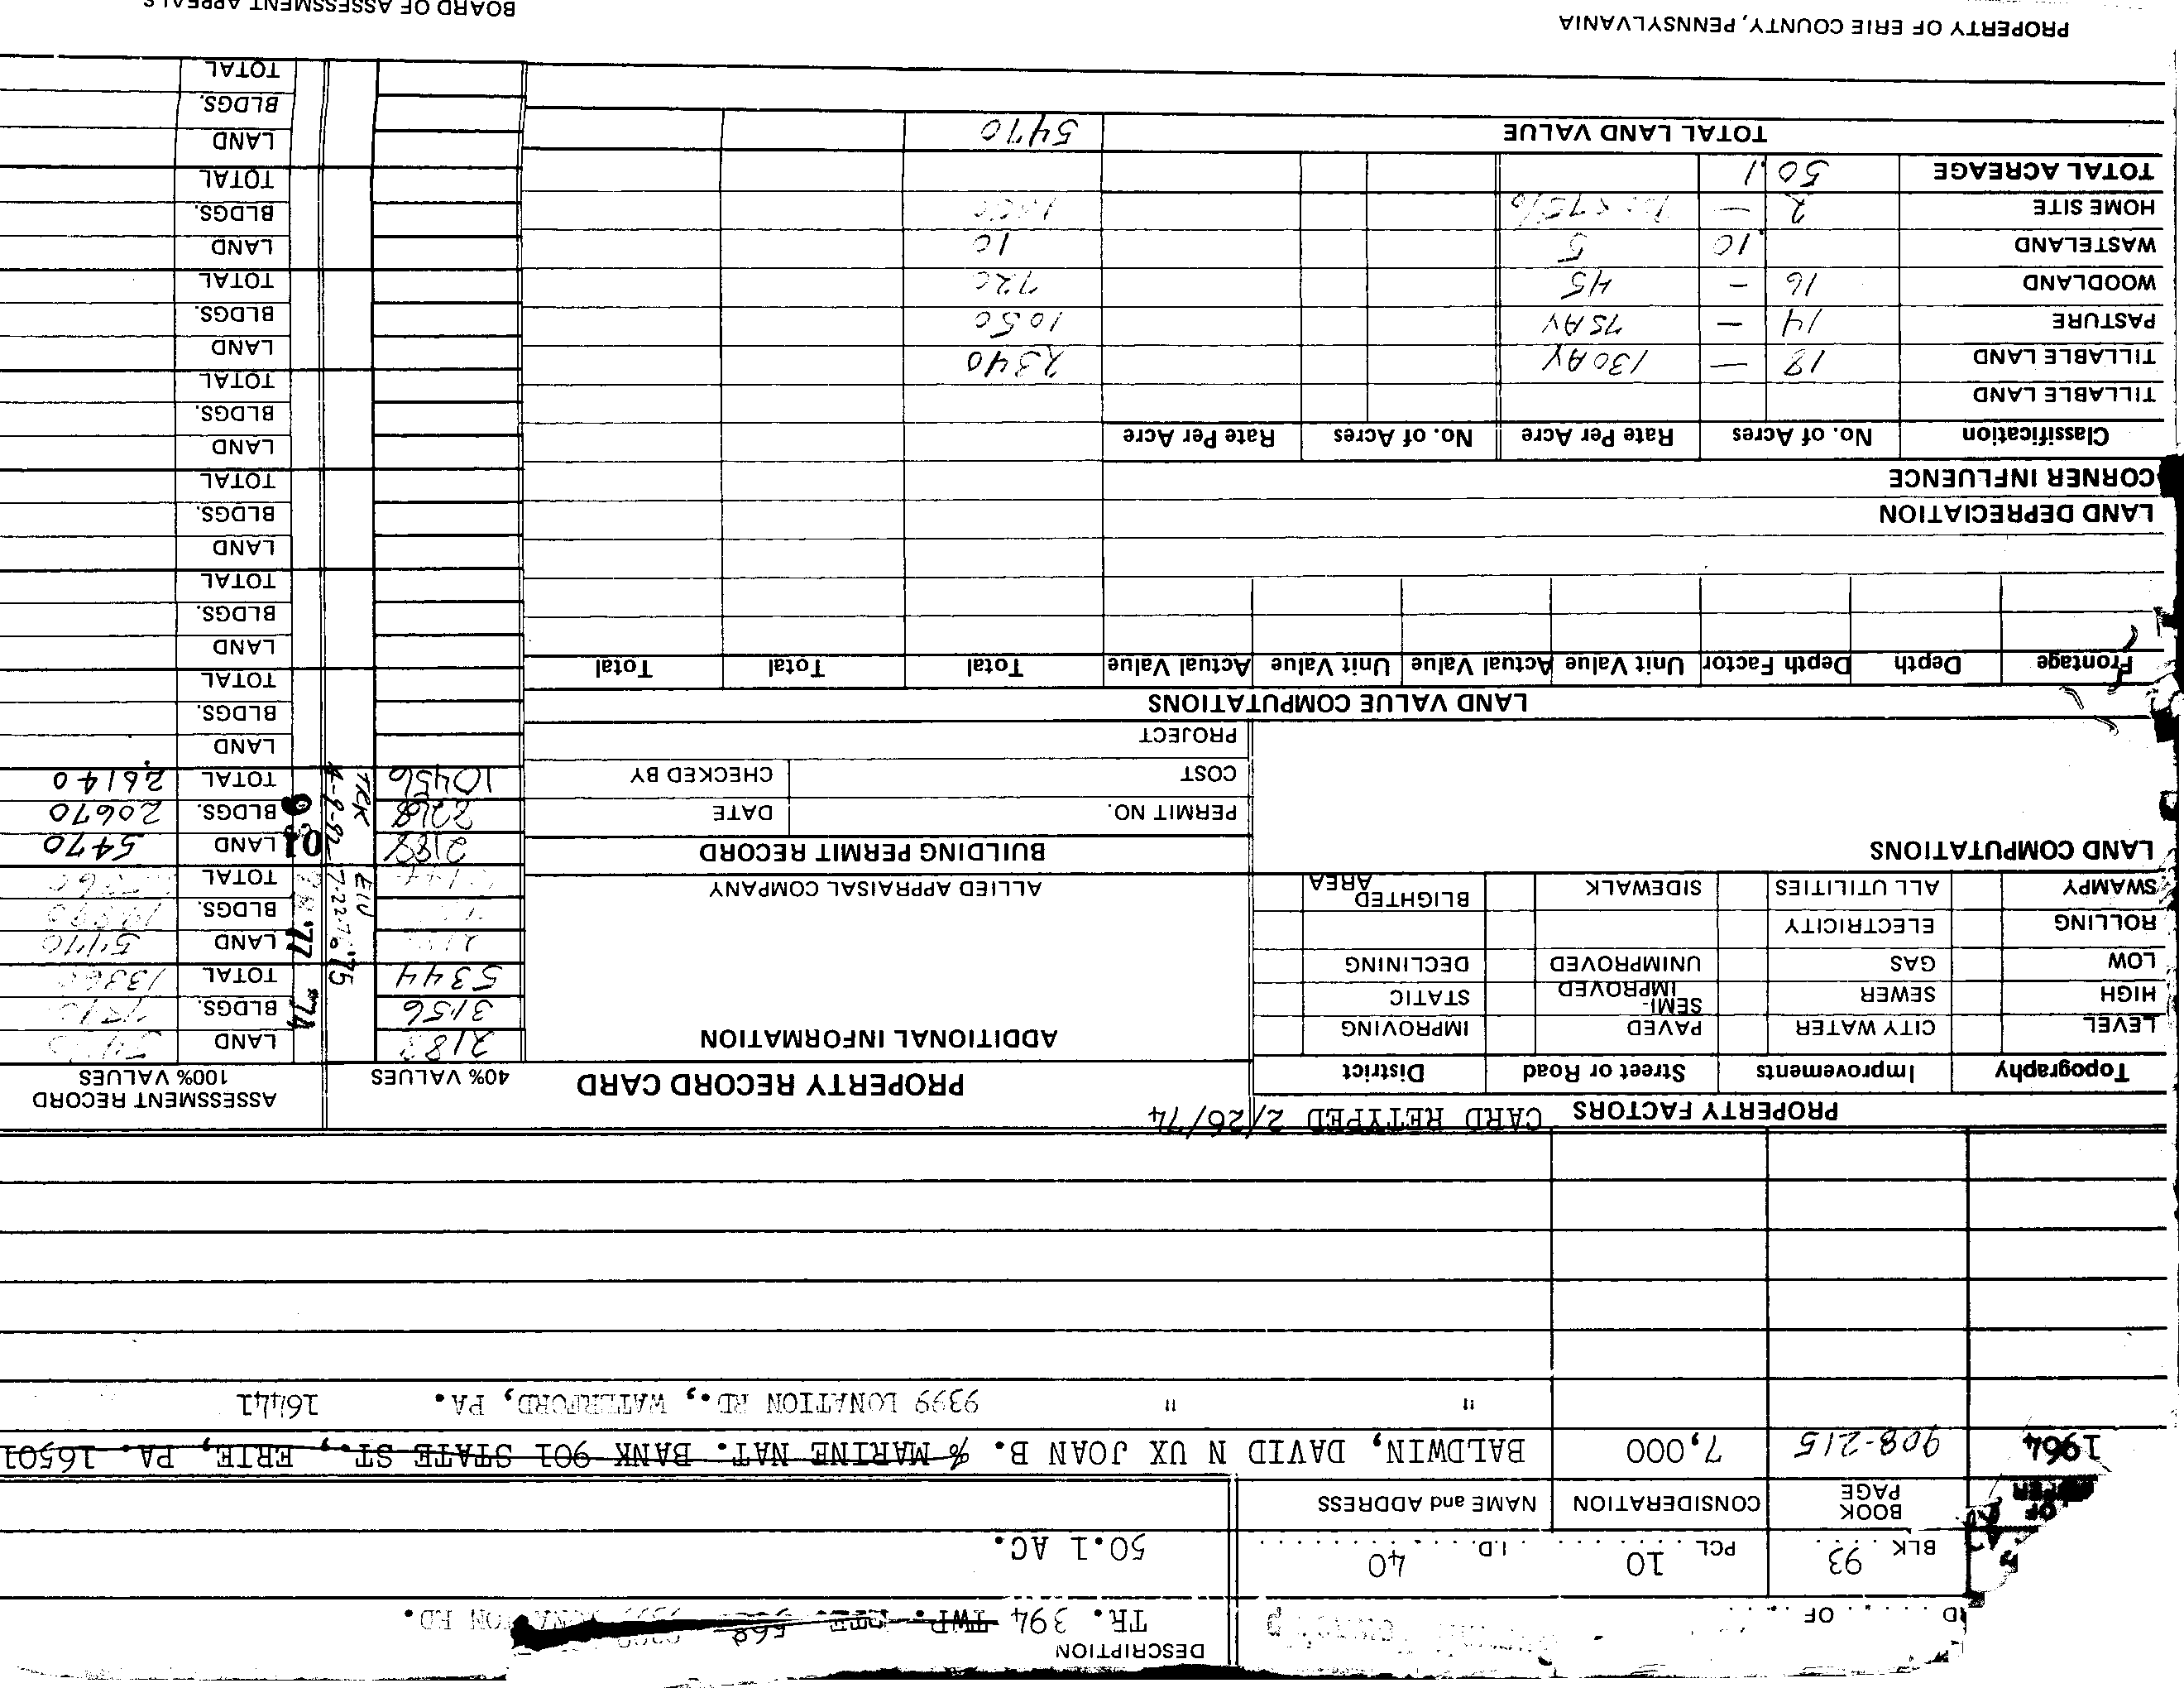 DESCRIPTION
OF
TR. 394 TWP. 568 RD.
BLK 93 PCL. 10 I.D. 40 50.1 AC.
OF
BOOK PAGE CONSIDERATION NAME and ADDRESS
1964 908-215 7,000 BALDWIN, DAVID N UX JOAN B. % MARINE NAT. BANK 901 STATE ST., ERIE, PA. 16501
" " 9399 DONATION RD., WATERFORD, PA. 16441
PROPERTY FACTORS CARD RETYPED 2/26/74
PROPERTY RECORD CARD
40% VALUES
ASSESSMENT RECORD
100% VALUES
Topography Improvements Street or Road District
LEVEL CITY WATER PAVED IMPROVING
HIGH SEWER SEMI-IMPROVED STATIC
LOW GAS UNIMPROVED DECLINING
ROLLING ELECTRICITY
SWAMPY ALL UTILITIES SIDEWALK BLIGHTED AREA
ADDITIONAL INFORMATION
ALLIED APPRAISAL COMPANY
2188 '74 LAND
3156 BLDGS.
5344 TOTAL
EW 7-22-76 '75
'77 LAND 5470
BLDGS.
TOTAL
LAND COMPUTATIONS
BUILDING PERMIT RECORD
PERMIT NO. DATE
COST CHECKED BY
PROJECT
TRK 4-9-92
2188 LAND 5470
8268 BLDGS. 20670
10456 TOTAL 26140
LAND VALUE COMPUTATIONS
Frontage Depth Depth Factor Unit Value Actual Value Unit Value Actual Value Total Total Total
LAND DEPRECIATION
CORNER INFLUENCE
Classification No. of Acres Rate Per Acre No. of Acres Rate Per Acre
TILLABLE LAND
TILLABLE LAND 18 — 130 AV 2340
PASTURE 14 — 75 AV 1050
WOODLAND 16 - 45 720
WASTELAND .10 5 10
HOME SITE 2 —
TOTAL ACREAGE 50.1
TOTAL LAND VALUE 5470
LAND
BLDGS.
TOTAL
LAND
BLDGS.
TOTAL
LAND
BLDGS.
TOTAL
LAND
BLDGS.
TOTAL
LAND
BLDGS.
TOTAL
LAND
BLDGS.
TOTAL
LAND
BLDGS.
TOTAL
PROPERTY OF ERIE COUNTY, PENNSYLVANIA
BOARD OF ASSESSMENT APPEALS